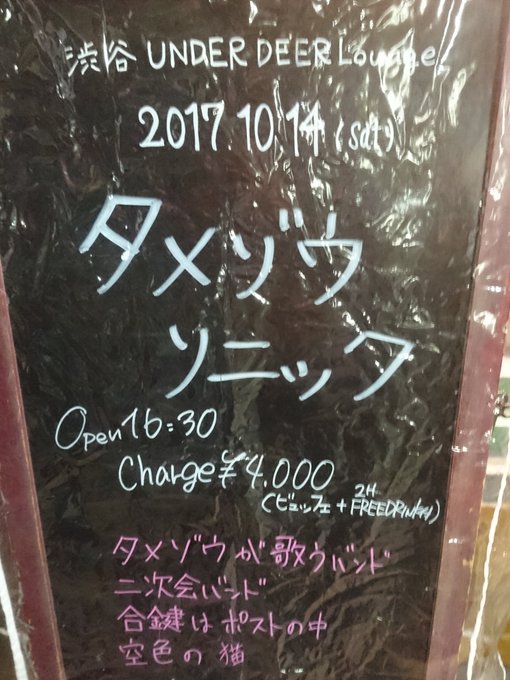 渋谷 UNDER DEER Lounge
2017.10.14 (sat)
タメゾウ
ソニック
Open 16:30
Charge ¥4.000
(ビュッフェ + 2H FREEDRINK付)
タメゾウが歌うバンド
二次会バンド
合鍵はポストの中
空色の猫